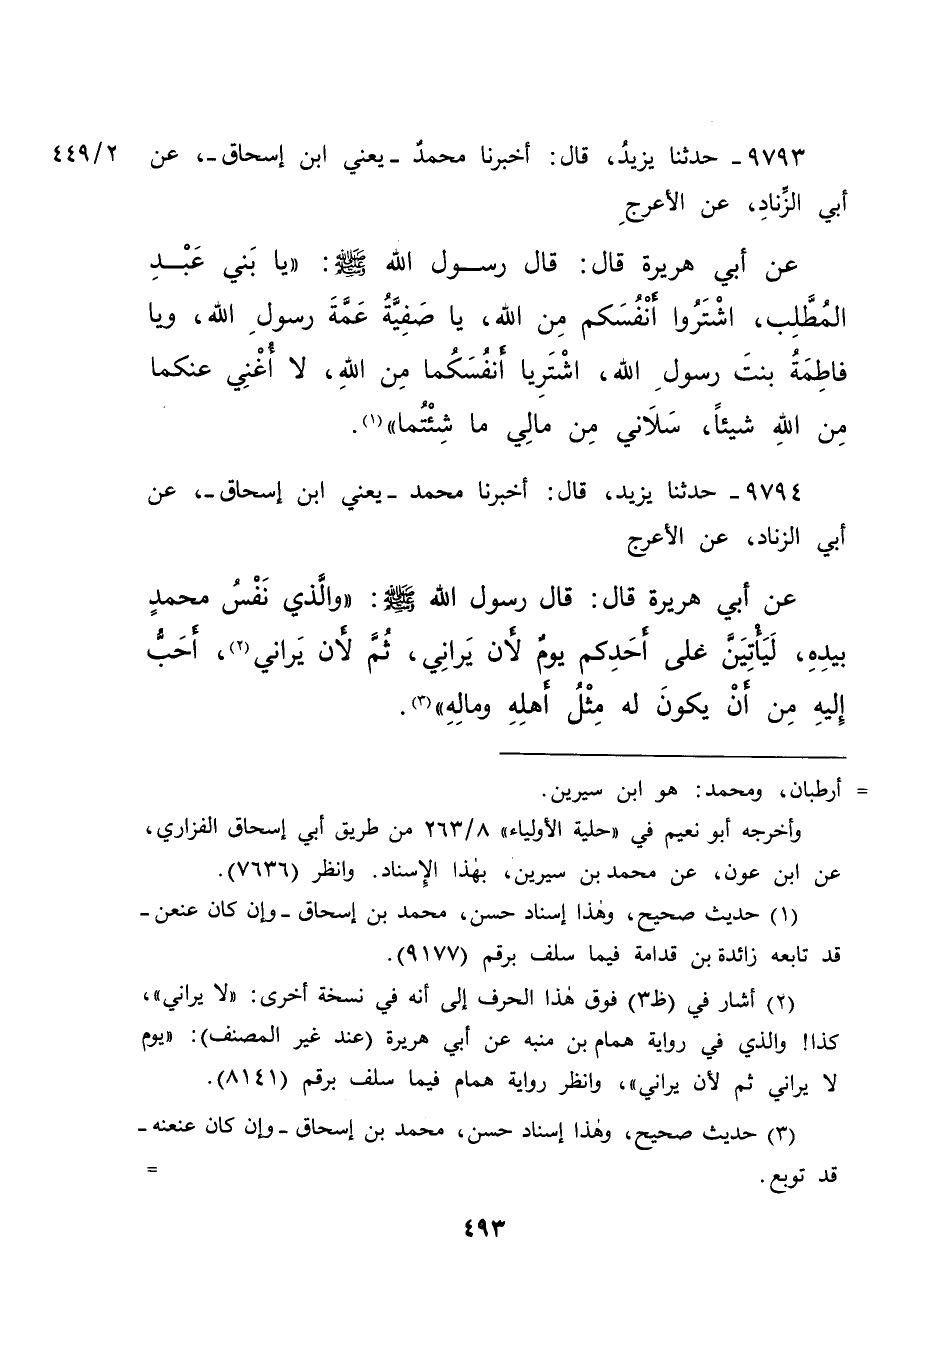 ٩٧٩٣ ـ حدثنا يزيدُ، قال: أخبرنا محمدٌ ـ يعني ابن إسحاق ـ، عن ٤٤٩/٢
أبي الزِّنادِ، عن الأعرجِ
عن أبي هريرة قال: قال رســول الله ﷺ: «يا بَني عَبْــدِ
المُطَّلِب، اشْتَرُوا أَنْفُسَكم مِن الله، يا صَفِيَّةُ عَمَّةَ رسولِ الله، ويا
فاطِمَةُ بنتَ رسولِ الله، اشْتَرِيا أَنفُسَكُما مِن اللهِ، لا أُغْنِي عنكما
مِن اللهِ شيئاً، سَلَاني مِن مالِي ما شِئْتُما»(١).
٩٧٩٤ ـ حدثنا يزيد، قال: أخبرنا محمد ـ يعني ابن إسحاق ـ، عن
أبي الزناد، عن الأعرج
عن أبي هريرة قال: قال رسول الله ﷺ: «والَّذي نَفْسُ محمدٍ
بيدِهِ، لَيَأْتِيَنَّ على أَحَدِكم يومٌ لأَن يَراني، ثُمَّ لأَن يَراني(٢)، أَحَبُّ
إليهِ مِن أَنْ يكونَ له مِثْلُ أَهلِهِ ومالِهِ»(٣).
= أرطبان، ومحمد: هو ابن سيرين.
وأخرجه أبو نعيم في «حلية الأولياء» ٢٦٣/٨ من طريق أبي إسحاق الفزاري،
عن ابن عون، عن محمد بن سيرين، بهٰذا الإسناد. وانظر (٧٦٣٦).
(١) حديث صحيح، وهٰذا إسناد حسن، محمد بن إسحاق ـ وإن كان عنعن ـ
قد تابعه زائدة بن قدامة فيما سلف برقم (٩١٧٧).
(٢) أشار في (ظ٣) فوق هٰذا الحرف إلى أنه في نسخة أخرى: «لا يراني»،
كذا! والذي في رواية همام بن منبه عن أبي هريرة (عند غير المصنف): «يوم
لا يراني ثم لأن يراني»، وانظر رواية همام فيما سلف برقم (٨١٤١).
(٣) حديث صحيح، وهٰذا إسناد حسن، محمد بن إسحاق ـ وإن كان عنعنه ـ
قد توبع. =
٤٩٣